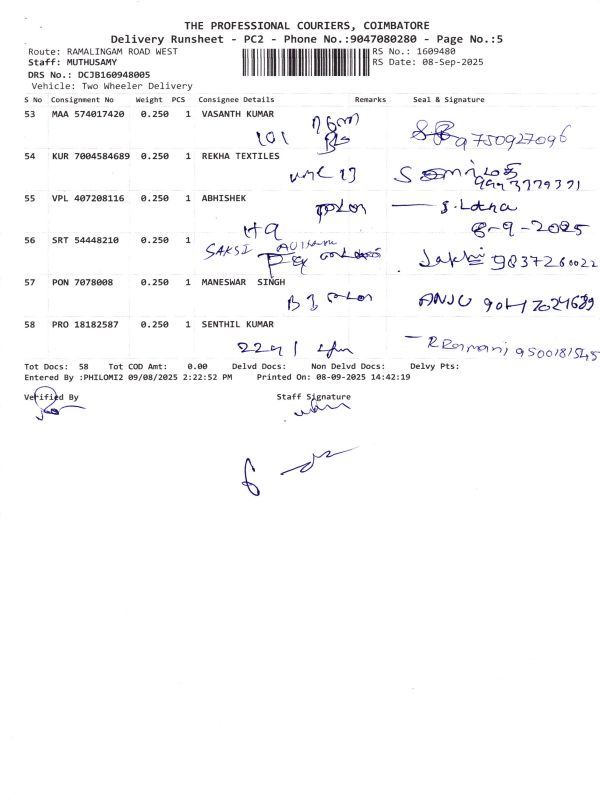 THE PROFESSIONAL COURIERS, COIMBATORE
Delivery Runsheet - PC2 - Phone No.:9047080280 - Page No.:5
Route: RAMALINGAM ROAD WEST RS No.: 1609480
Staff: MUTHUSAMY RS Date: 08-Sep-2025
DRS No.: DCJB160948005
Vehicle: Two Wheeler Delivery
S No Consignment No Weight PCS Consignee Details Remarks Seal & Signature
53 MAA 574017420 0.250 1 VASANTH KUMAR
101 9750927096
54 KUR 7004584689 0.250 1 REKHA TEXTILES
55 VPL 407208116 0.250 1 ABHISHEK
S. Latha
H9 8-9-2025
56 SRT 54448210 0.250 1
SAKSI
9837260022
57 PON 7078008 0.250 1 MANESWAR SINGH
B3 ANJU
58 PRO 18182587 0.250 1 SENTHIL KUMAR
2291 R Ramani 9500181545
Tot Docs: 58 Tot COD Amt: 0.00 Delvd Docs: Non Delvd Docs: Delvy Pts:
Entered By :PHILOMI2 09/08/2025 2:22:52 PM Printed On: 08-09-2025 14:42:19
Verified By Staff Signature